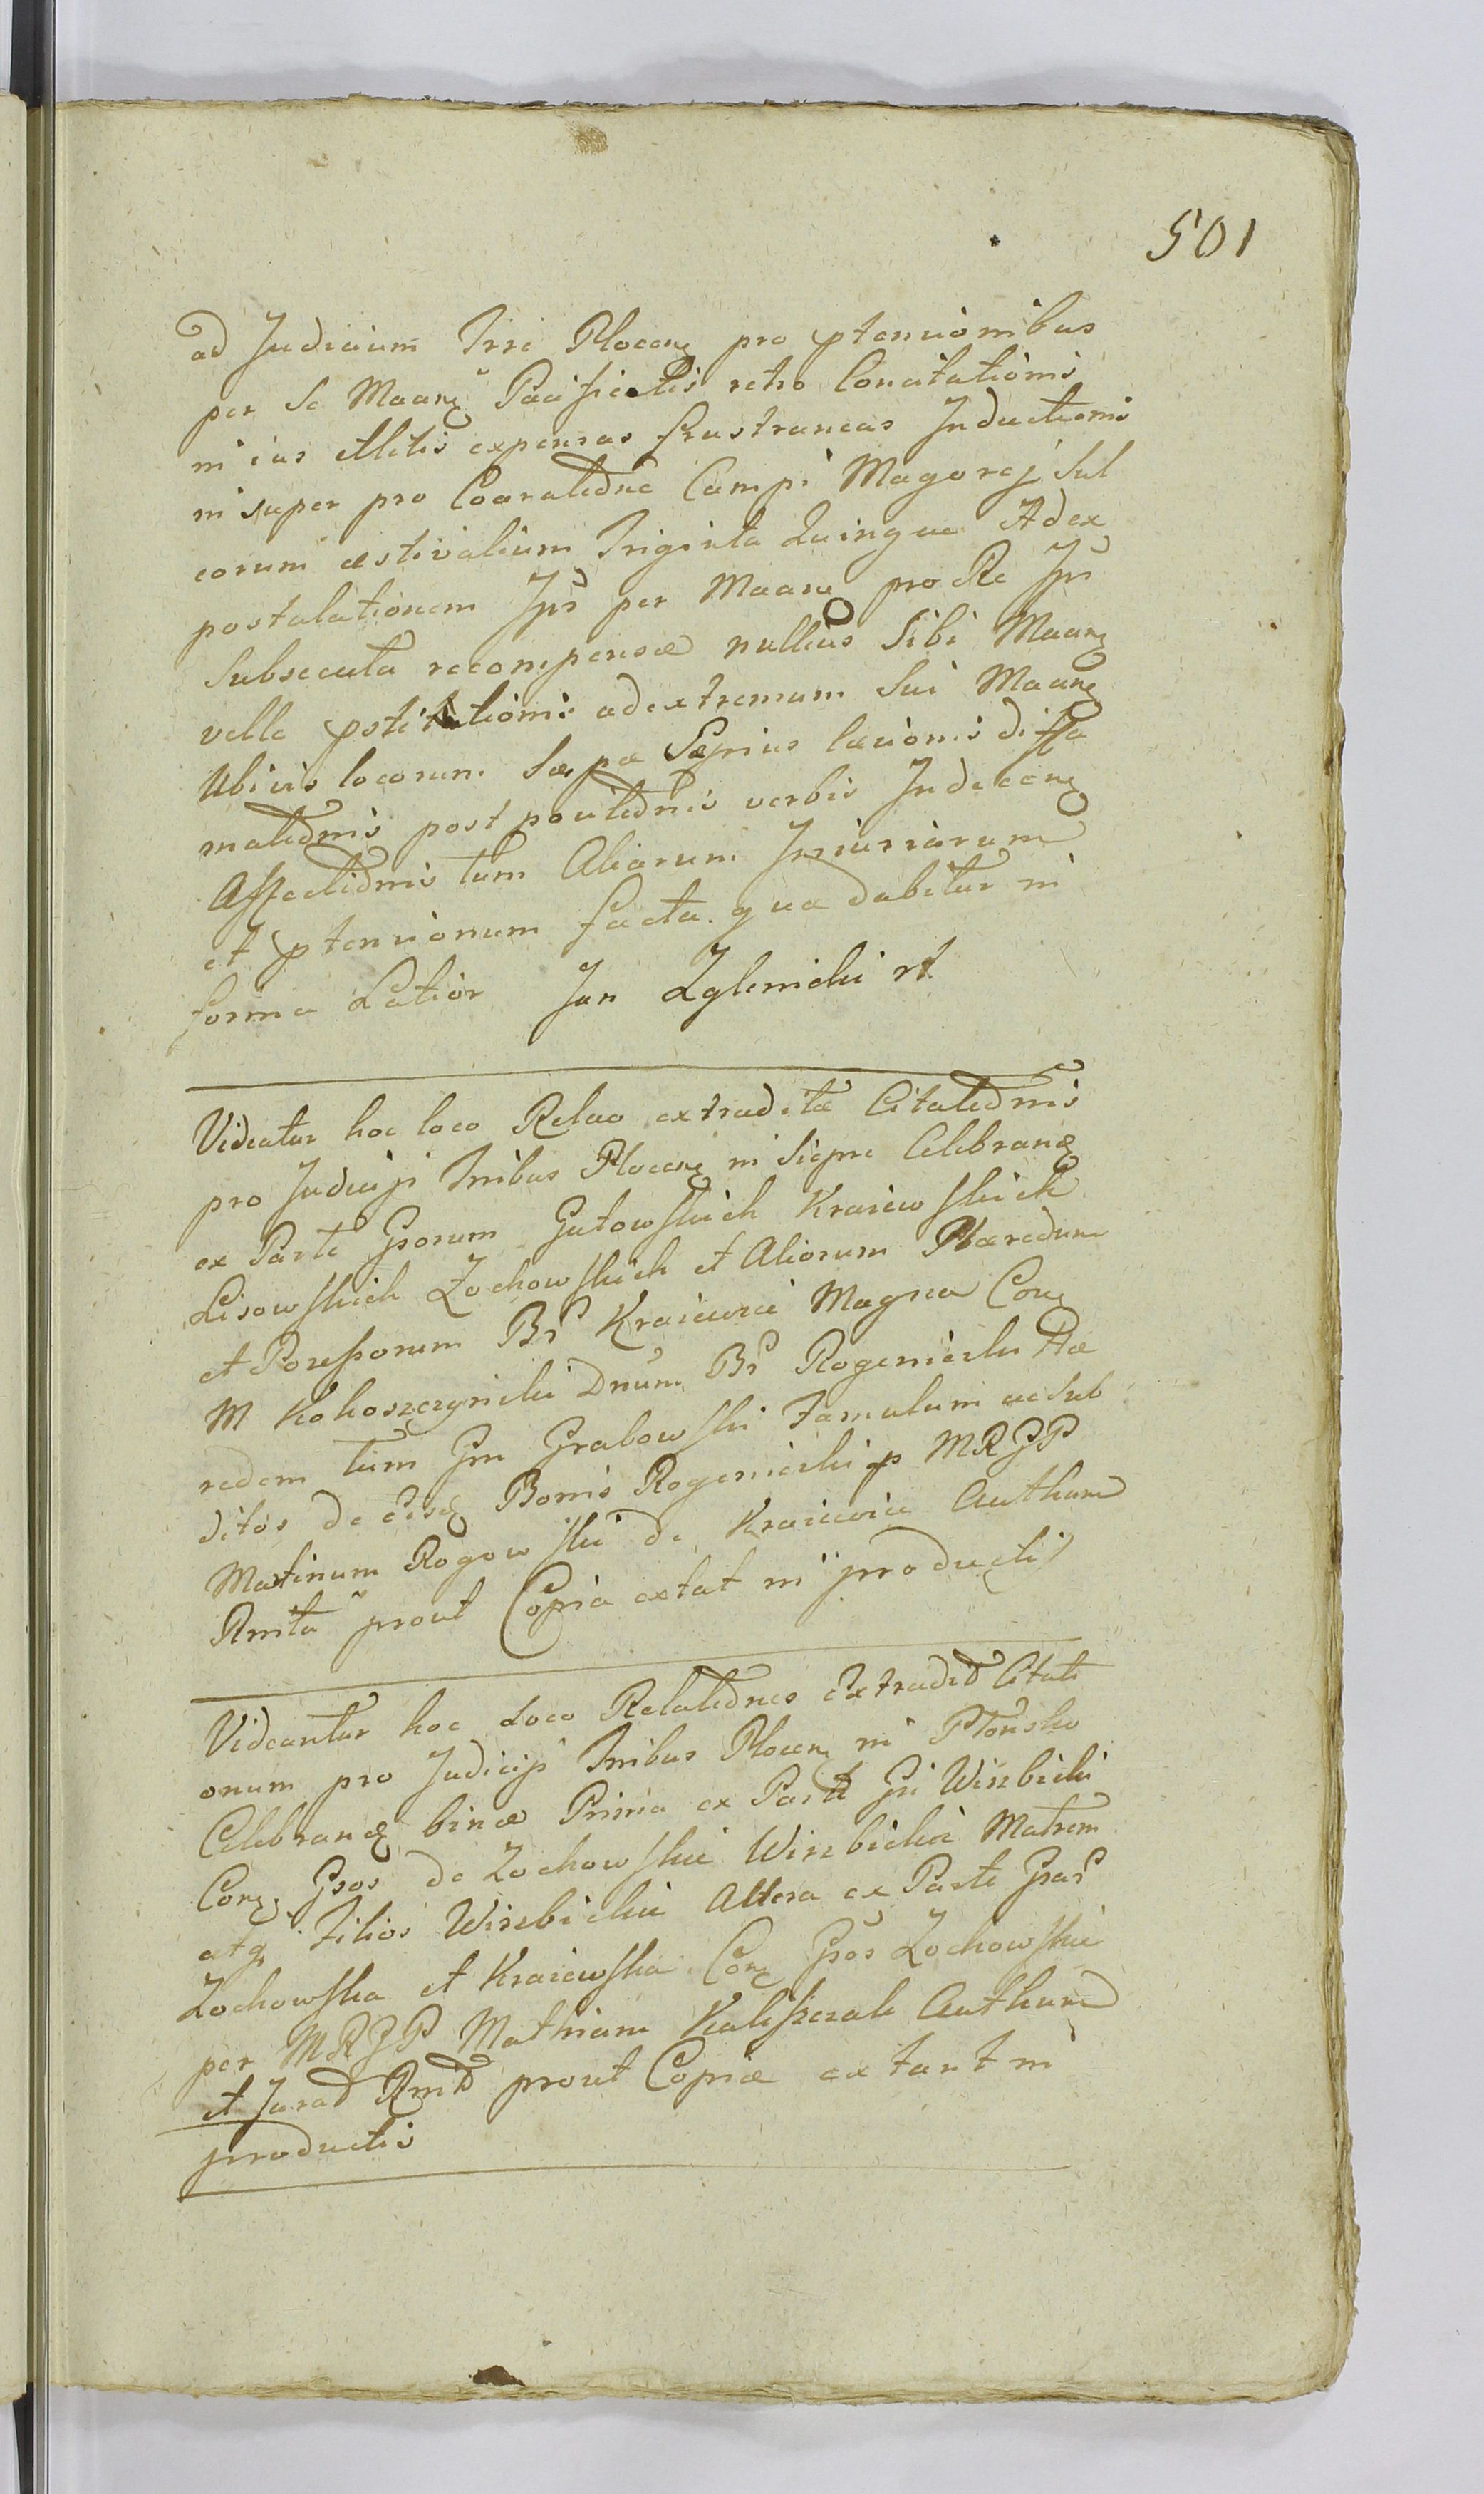 501
ad Judicium Trre Plocen̄ pro ptensionibus
per Se Maarē Pacificatis retro Concitationis
in ius et litis expensas frustraneas Inductionis
insuper pro Coaratione Campi Magorej Sul
corum æstivalium Triginta Quinque Ad ex
postulationem Ips per Maarē pro Re Ips
Subsecuta recompensæ nullius Sibi Maarē
velle pstitutionis ad extremum Sui Maarē
Ubivis locorum Sæpæ Sæpius læsionis diffa
mationis post positionis verbis Indecen̄
Affectionis tum Aliarum Injuriarum
et ptensionum facta quæ dabitur in
forma Latior Jan Zglenicki rt
Videatur hoc loco Relao extraditæ Citationis
pro Judicijs Tribus Plocen̄ in Siepre Celebranᵭ
ex Parte Gsorum Gutowskich Kraiewskich
Lisowskich Żochowskich et Aliorum Hæredum
et Possessorum Br̄ Kraiewice Magna Con̄
M Kokoszczyński Dnūm Br̄ Rogienicki Hæ
redem tum Gn Grabowski Famulum ac Sub
ditos de eisᵭ Bonis Rogienicki p MRGP
Matinum Rogowski de Kraiewice Authen
Rnita prout Copia extat in productis
Videantur hoc Loco Relationes Extradit Citati
onum pro Judicijs Tribus Plocen̄ in Płońsko
Celebranᵭ binæ Prima ex Parte Gsi Wirzbicki
Con̄ Gsos de Żochowskie Wirzbickie Matrem
atq Filios Wirzbickie Altera ex Parte Gsar
Żochowska et Kraiewska Con̄ Gsos Żochowskie
per MRGP Mathiam Kaliszczak Authen
et Jurat Rnit prout Copiæ extant in
productis